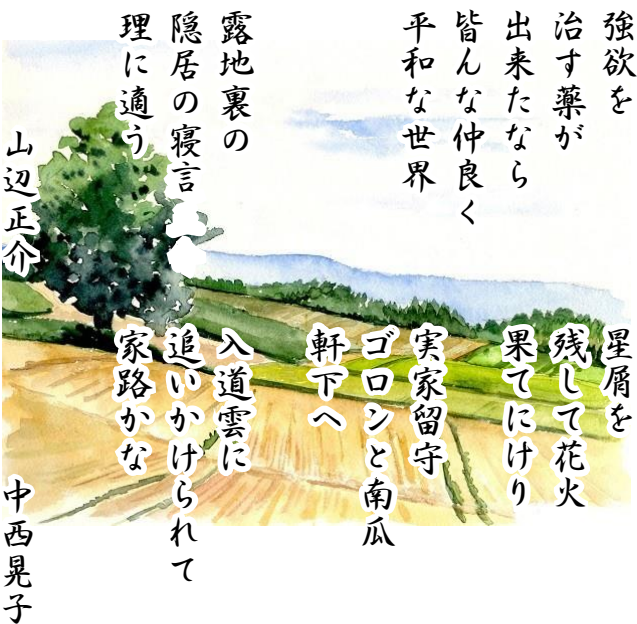 強欲を
治す薬が
出来たなら
皆んな仲良く
平和な世界
露地裏の
隠居の寝言
理に適う
山辺正介
星屑を
残して花火
果てにけり
実家留守
ゴロンと南瓜
軒下へ
入道雲に
追いかけられて
家路かな
中西晃子